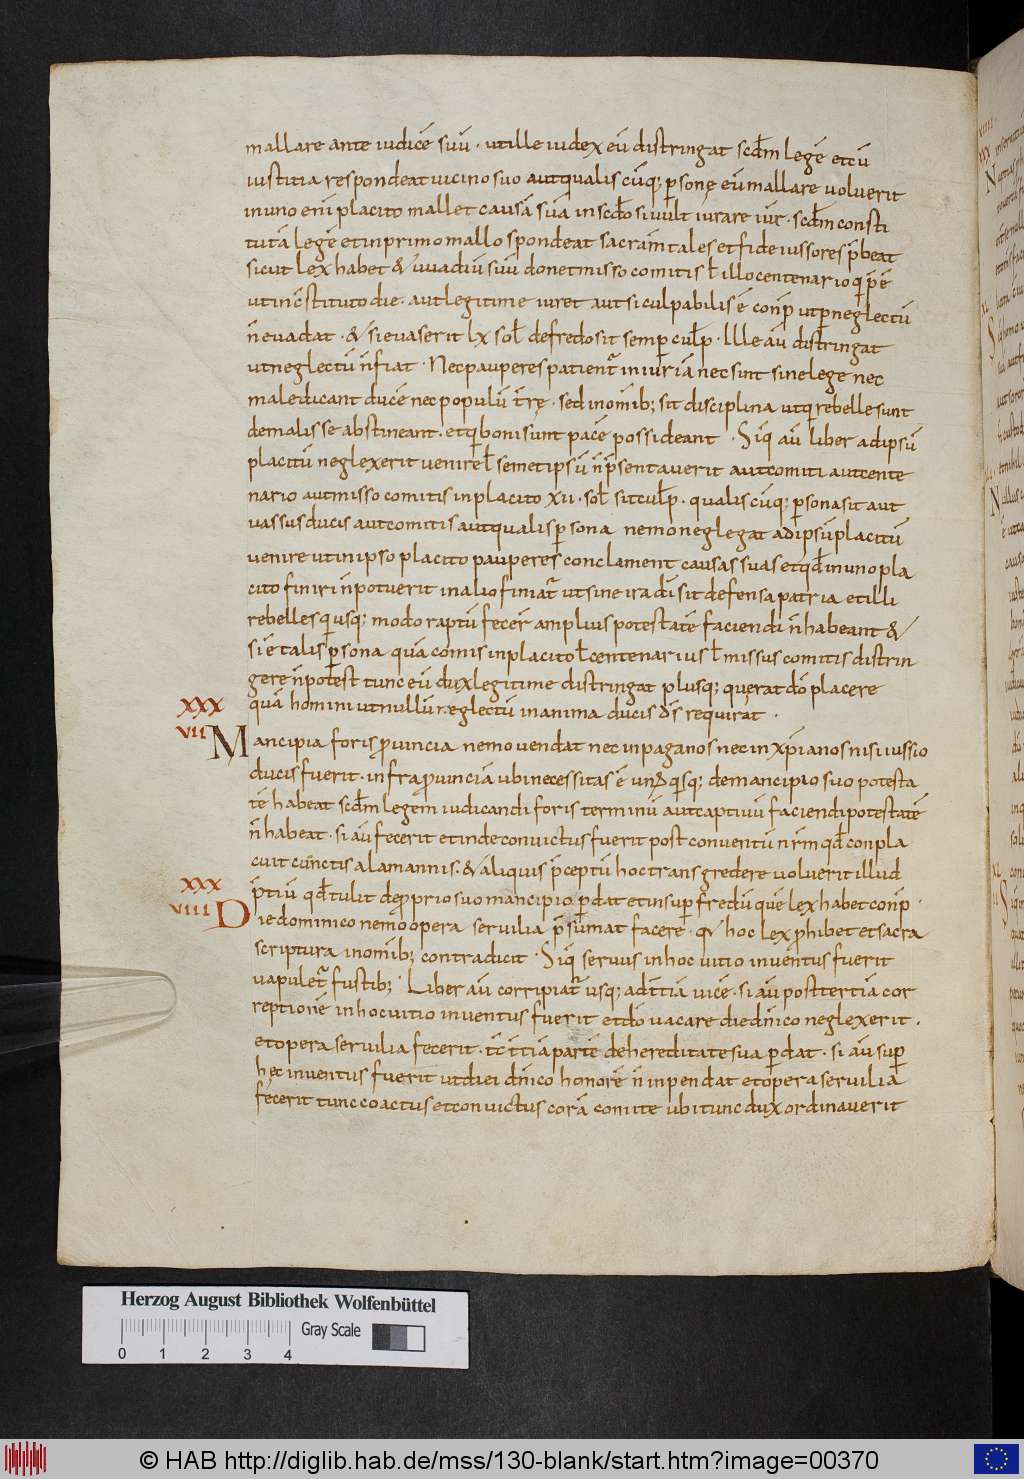 mallare ante iudicē suū · ut ille iudex eū distringat scdm legē et cū
iustitia respondeat uicino suo aut qualiscūq; psonę eū mallare uoluerit
in uno eni placito mallet causā suā in scdo si uult iurare iur · scdm consti
tutā legē et in primo mallo spondeat sacramtales et fideiussores pbeat
sicut lex habet & uuadiū suū donet misso comitis ł illo centenario q pē
ut in cstituto die · aut legitime iuret aut si culpabilis ē conp ut p neglectū
n euadat · & si euaserit lx sol de fredo sit semp culp · Ille aū distringat
ut neglectū n fiat · Nec pauperes patient iniuriā nec sint sine lege nec
maledicant ducē nec populū trę · sed in omib; sit disciplina ut q rebelles unt
de malis se abstineant · et q boni sunt pacē possideant · Siq aū liber ad ipsū
placitū neglexerit uenire ł semetipsū n psentauerit aut comiti aut cente
nario aut misso comitis in placito xii · sol sit culp · qualiscūq; persona sit aut
uassus ducis aut comitis aut qualis psona nemo neglegat ad ipsū placitū
uenire ut in ipso placito pauperes conclament causas suas et qd in uno pla
cito finiri n potuerit in alio finiat ut sine ira di sit defensa patria et illi
rebelles q usq; modo raptū fecer amplius potestatē faciendi n habeant &
si ē talis psona quā comis in placito ł centenarius ł missus comitis distrin
gere n potest tunc eū dux legitime distringat plus q; querat do placere
quā homini ut nullū neglectū in anima ducis ds requirat ·
XXX
VII Mancipia foris puincia nemo uendat nec in paganos nec in xpianos nisi iussio
ducis fuerit · infra puinciā ubi necessitas ē un qsq; de mancipio suo potesta
tē habeat scdm legem iudicandi foris terminū aut captiuū faciendi potestatē
n habeat · si aū fecerit et inde conuictus fuerit post conuentū nrm qd conpla
cuit cunctis alamannis · & aliquis pceptū hoc transgredere uoluerit illud
XXX
ptiū qd tulit de pprio suo mancipio pdat et insup fredū que lex habet conp ·
VIII Die dominico nemo opera seruilia psumat facere · q hoc lex phibet et sacra
scriptura in omib; contradicit · Siq seruus in hoc uitio inuentus fuerit
uapulet fustib; · Liber aū corripiat usq; ad tiā uicē · si aū post tertiā cor
reptionē in hoc uitio inuentus fuerit et do uacare die dnico neglexerit ·
et opera seruilia fecerit · tc tiā partē de hereditate sua pdat · si aū sup
hęc inuentus fuerit ut diei dnico honorē n inpendat et opera seruilia
fecerit tunc coactus et conuictus corā comite ubi tunc dux ordinauerit
Herzog August Bibliothek Wolfenbüttel
Gray Scale
0 1 2 3 4
© HAB http://diglib.hab.de/mss/130-blank/start.htm?image=00370